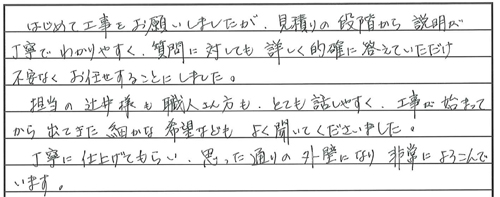 はじめて工事をお願いしましたが、見積りの段階から説明が
丁寧でわかりやすく、質問に対しても詳しく的確に答えていただけ
不安なくお任せすることにしました。
担当の辻井様も職人さん方も、とても話しやすく、工事が始まって
から出てきた細かな希望なども よく聞いてくださいました。
丁寧に仕上げてもらい、思った通りの外壁になり 非常によろこんで
います。